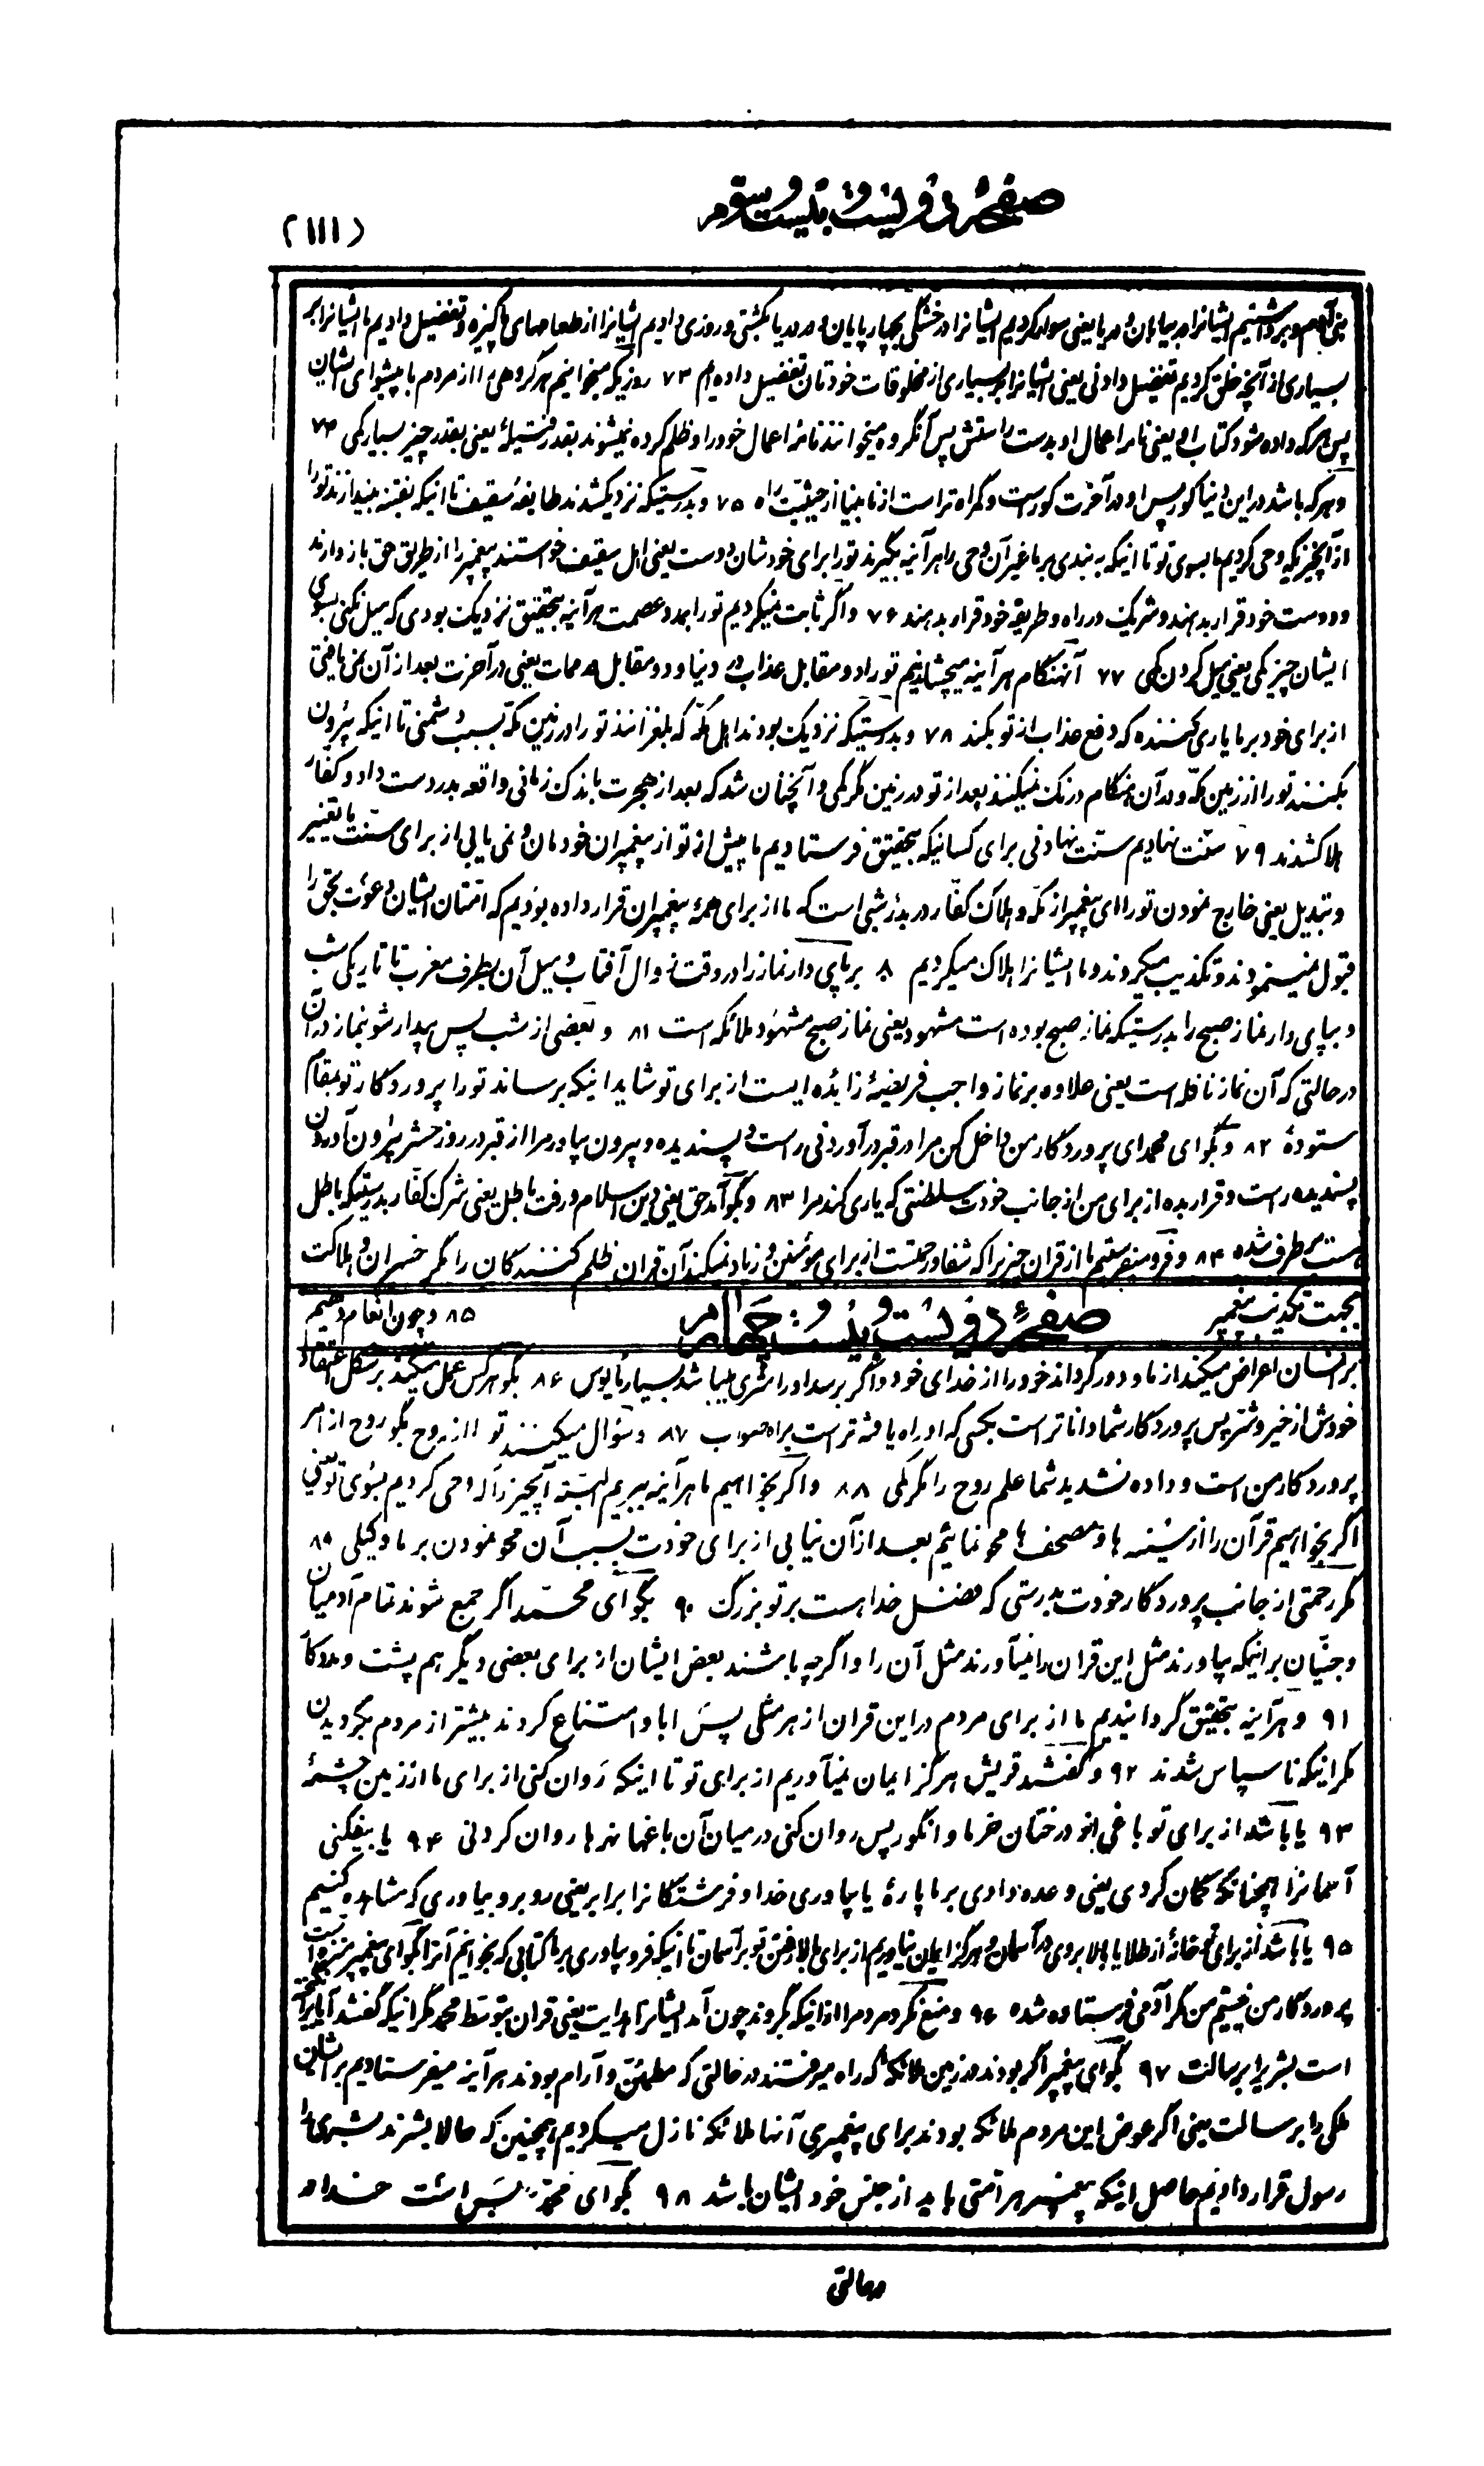 صفحهٔ دویست و بیست و سوم
(۱۱۱)
بنی آدم و برداشتیم ایشانرا در بیابان و دریا یعنی سوار کردیم ایشانرا در خشکی بچهارپایان و در دریا بکشتی و روزی دادیم ایشانرا از طعامهای پاکیزه و تفضیل دادیم ما ایشانرا بر
بسیاری از آنچه خلق کردیم تفضیل دادنی یعنی ایشانرا بر بسیاری از مخلوقات خودمان تفضیل داده‌ایم ۷۳ روزیکه میخوانیم هر گروهی را از مردم با پیشوای ایشان
پس هر که داده شود کتاب او یعنی نامهٔ اعمال او بدست راستش پس آنگروه میخوانند نامهٔ اعمال خود را و ظلم کرده نمیشوند بقدر فتیلهٔ یعنی بقدر چیز بسیار کمی ۷۴
و هر که باشد در این دنیا کور پس او در آخرت کور است و گمراه تر است از نابینا از حیثیت راه ۷۵ و بدرستیکه نزدیکشدند طایفهٔ سقیف تا اینکه بفتنه بیندازند تو را
از آنچیزیکه وحی کردیم ما بسوی تو تا اینکه به بندی بر ما غیر آن وحی را هر آینه بگیرند تو را برای خودشان دوست یعنی اهل سقیف خواستند پیغمبر را از طریق حق باز دارند
و دوست خود قرار بدهند و شریک در راه و طریقهٔ خود قرار بدهند ۷۶ و اگر ثابت نمیکردیم تو را بمدد عصمت هر آینه بتحقیق نزدیک بودی که میل بکنی بسوی
ایشان چیز کمی یعنی میل کردن کمی ۷۷ آنهنگام هر آینه میچشانیدیم تو را دو مقابل عذاب در دنیا و دو مقابل در ممات یعنی در آخرت بعد از آن نمی یافتی
از برای خود بر ما یاری کننده که دفع عذاب از تو بکند ۷۸ و بدرستیکه نزدیک بودند اهل مکّه که بلغزانند تو را در زمین مکّه بسبب دشمنی تا اینکه بیرون
بکنند تو را از زمین مکّه و در آن هنگام درنگ نمیکنند بعد از تو در زمین مگر کمی و آنچنان شد که بعد از هجرت باندک زمانی واقعه بدر دست داد و کفار
هلاکشدند ۷۹ سنّت نهادیم سنّت نهادنی برای کسانیکه بتحقیق فرستادیم ما پیش از تو از پیغمبران خودمان و نمی یابی از برای سنّت ما تغییر
و تبدیل یعنی خارج نمودن تو را ای پیغمبر از مکّه و هلاک کفّار در بدر سنّتی است که ما از برای همهٔ پیغمبران قرار داده بودیم که امّتان ایشان دعوت بحق را
قبول نمینمودند و تکذیب میکردند و ما ایشانرا هلاک میکردیم ۸۰ برپای دار نماز را در وقت زوال آفتاب و میل آن بطرف مغرب تا تاریکی شب
و بپای دار نماز صبح را بدرستیکه نماز صبح بوده است مشهود یعنی نماز صبح مشهود ملائکه است ۸۱ و بعضی از شب پس بیدار شو بنماز در آن
در حالتی که آن نماز نافله است یعنی علاوه بر نماز واجب فریضهٔ زائده ایست از برای تو شاید اینکه برساند تو را پروردگار تو بمقام
ستودهٔ ۸۲ و بگو ای محمد ای پروردگار من داخل کن مرا در قبر در آوردنی راست و پسندیده و بیرون بیاور مرا از قبر در روز حشر بیرون آوردن
پسندیده راست و قرار بده از برای من از جانب خودت سلطنتی که یاری کند مرا ۸۳ و بگو آمد حق یعنی دین اسلام و رفت باطل یعنی شرک کفّار بدرستیکه باطل
هست برطرف شده ۸۴ و فرو میفرستیم ما از قران چیزیرا که شفا و رحمتست از برای مؤمنین و زیاد نمیکند آن قران ظلم کنندگان را مگر خسران و هلاکت
بجهت تکذیب پیغمبر
صفحهٔ دویست و بیست و چهارم
۸۵ و چون انعام دهیم
بر انسان اعراض میکند از ما و دور گرداند خود را از خدای خود و اگر برسد او را شرّی میباشد بسیار مأیوس ۸۶ بگو هر کس عمل میکند بر شکل اعتقاد
خودش از خیر و شر پس پروردگار شما دانا تر است بکسی که او راه یافته تر است براه صواب ۸۷ و سؤال میکنند تو را از روح بگو روح از امر
پروردگار من است و داده نشدید شما علم روح را مگر کمی ۸۸ و اگر بخواهیم ما هر آینه ببریم البتّه آنچیز را که وحی کردیم بسوی تو یعنی
اگر بخواهیم قرآن را از سینه ها و مصحف ها محو نمائیم بعد از آن نیابی از برای خودت بسبب آن محو نمودن بر ما وکیلی ۸۹
مگر رحمتی از جانب پروردگار خودت بدرستی که فضل خدا هست بر تو بزرگ ۹۰ بگو ای محمّد اگر جمع شوند تمام آدمیان
و جنّیان بر اینکه بیاورند مثل این قران را نمیآورند مثل آن را و اگر چه باشند بعض ایشان از برای بعضی دیگر هم پشت و مددکار
۹۱ و هر آینه بتحقیق گردانیدیم ما از برای مردم در این قران از هر مثلی پس ابا و امتناع کردند بیشتر از مردم بگرویدن
مگر اینکه ناسپاس شدند ۹۲ و گفتند قریش هرگز ایمان نمیآوریم از برای تو تا اینکه روان کنی از برای ما از زمین چشمهٔ
۹۳ یا باشد از برای تو باغی انبو درختان خرما و انگور پس روان کنی در میان آن باغها نهرها روان کردنی ۹۴ یا بیفکنی
آسمانرا همچنانکه گمان کردی یعنی وعده دادی بر ما پارهٔ یا بیاوری خدا و فرشتگانرا برابر یعنی روبرو بیاوری که مشاهده کنیم
۹۵ یا باشد از برای تو خانهٔ از طلا یا بالا بروی در آسمان و هرگز ایمان نیاوریم از برای بالا رفتن تو بر آسمان تا اینکه فرو بیاوری بر ما کتابی که بخوانیم آنرا بگو ای پیغمبر منزه است
پروردگار من نیستم من مگر آدمی فرستاده شده ۹۶ و منع نکرد مردم را از اینکه بگروند چون آمد ایشانرا هدایت یعنی قران بتوسط محمد مگر اینکه گفتند آیا برانگیخته
است بشریرا برسالت ۹۷ بگو ای پیغمبر اگر بودند در زمین ملائکهٔ که راه میرفتند در حالتی که مطمئنّ و آرام بودند هر آینه میفرستادیم بر ایشان
ملکی را برسالت یعنی اگر عوض این مردم ملائکه بودند برای پیغمبری آنها ملائکه نازل میکردیم همچنین که حالا بشرند بشری را
رسول قرار دادیم حاصل اینکه پیغمبر هر امّتی باید از جنس خود ایشان باشد ۹۸ بگو ای محمّد بس است خدا
در حالتی